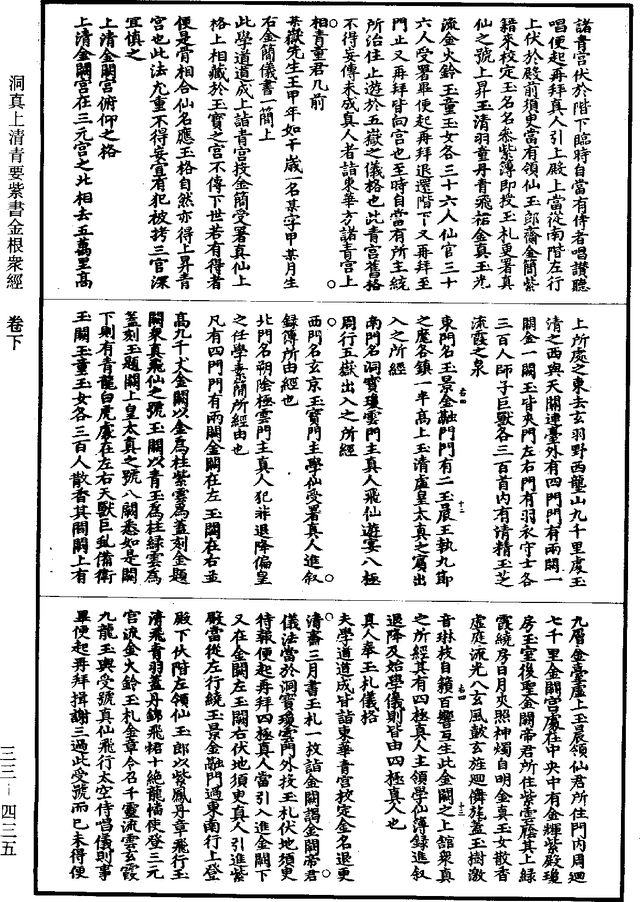 諸青宮伏於階下臨時自當有侍者唱讚聽
唱便起再拜真人引上殿上當從南階左行
上伏於殿前須臾當有領仙玉郎齎金簡紫
籍來校定玉名名悉紫簿即授玉札更署真
仙之號上昇玉清羽童丹青飛裙金真玉光
流金火鈴玉童玉女各三十六人仙官三十
六人受署畢便起再拜退還階下又再拜至
門止又再拜皆向宮也至時自當有所主統
所治住止遊於五嶽之儀格也此青宮舊格
不得妄傳未成真人者詣東華方諸青宮上
相青童君几前
某嶽先生王甲年如干歲一名某字甲某月生
右金簡儀書一簡上
此學道道成上詣青宮投金簡受署真仙上
格上相藏於玉寶之宮不傳下世若有得者
便是骨相合仙名應玉格自然亦得上昇青
宮也此法尤重不得妄宣有犯被拷三官深
宜慎之
上清金闕宮俯仰之格
上清金闕宮在三元宮之北相去五萬里高
上所處之東去玄羽野西壟山九千里處玉
清之西與天關連臺外有四門門有兩闕一
闕金一闕玉皆夾門左右門有羽衣守士各
三百人師子巨獸各三百首內有清精玉芝
流霞之泉
東門名玉景金融門門有二玉晨王執九節
之麾各鎮一半高上玉清虛皇太真之賓出
入之所經
南門名洞寶瓊雲門主真人飛仙遊宴八極
周行五嶽出入之所經
西門名玄京玉寶門主學仙受署真人進敘
錄簿所由經也
北門名朔陰極雲門主真人犯非退降偏皇
之任學素簡所經由也
凡有四門門有兩闕金闕在左玉闕在右並
高九千丈金闕以金為柱紫雲為蓋刻金題
闕眾真飛仙之號玉闕以青玉為柱綠雲為
蓋刻玉題闕上皇太真之號八闕悉如是闕
下則有青龍白虎處在左右天獸巨虬備衛
玉闕玉童玉女各三百人散香其間闕上有
九層金臺虛上玉晨領仙君所住門內周迴
七千里金闕宮處在中央中有金輝紫殿瓊
房玉室後聖金闕帝君所住紫雲蔭其上綠
霞繞房日月夾照神燭自明金真玉女散香
虛庭流光八玄風鼓玄旌迴儛旄蓋玉樹激
音琳枝自籟百響互生此金闕之上館眾真
之所經其有四極真人主領學仙簿錄進敘
退降及始學儀則皆由四極真人也
真人奉玉札儀格
夫學道道成皆詣東華青宮校定金名退更
清齋三月書玉札一枚詣金闕謁金闕帝君
儀法當於洞寶瓊雲門外投玉札伏地須臾
待報便起再拜四極真人當引入進金闕下
又在金闕左玉闕右伏地須臾真人引進紫
殿當從左行繞玉景金融門過東南行上登
殿下伏階左領仙玉郎以紫鳳丹章飛行玉
清飛青羽蓋丹錦飛裙十絕龍幡使登三元
宮流金火鈴玉札金章令召千靈流雲玄霞
九龍玉輿受號真仙飛行太空侍唱儀則事
畢便起再拜揖謝三過此受號而已未得便
洞真上清青要紫書金根眾經　卷下
三三—四三五